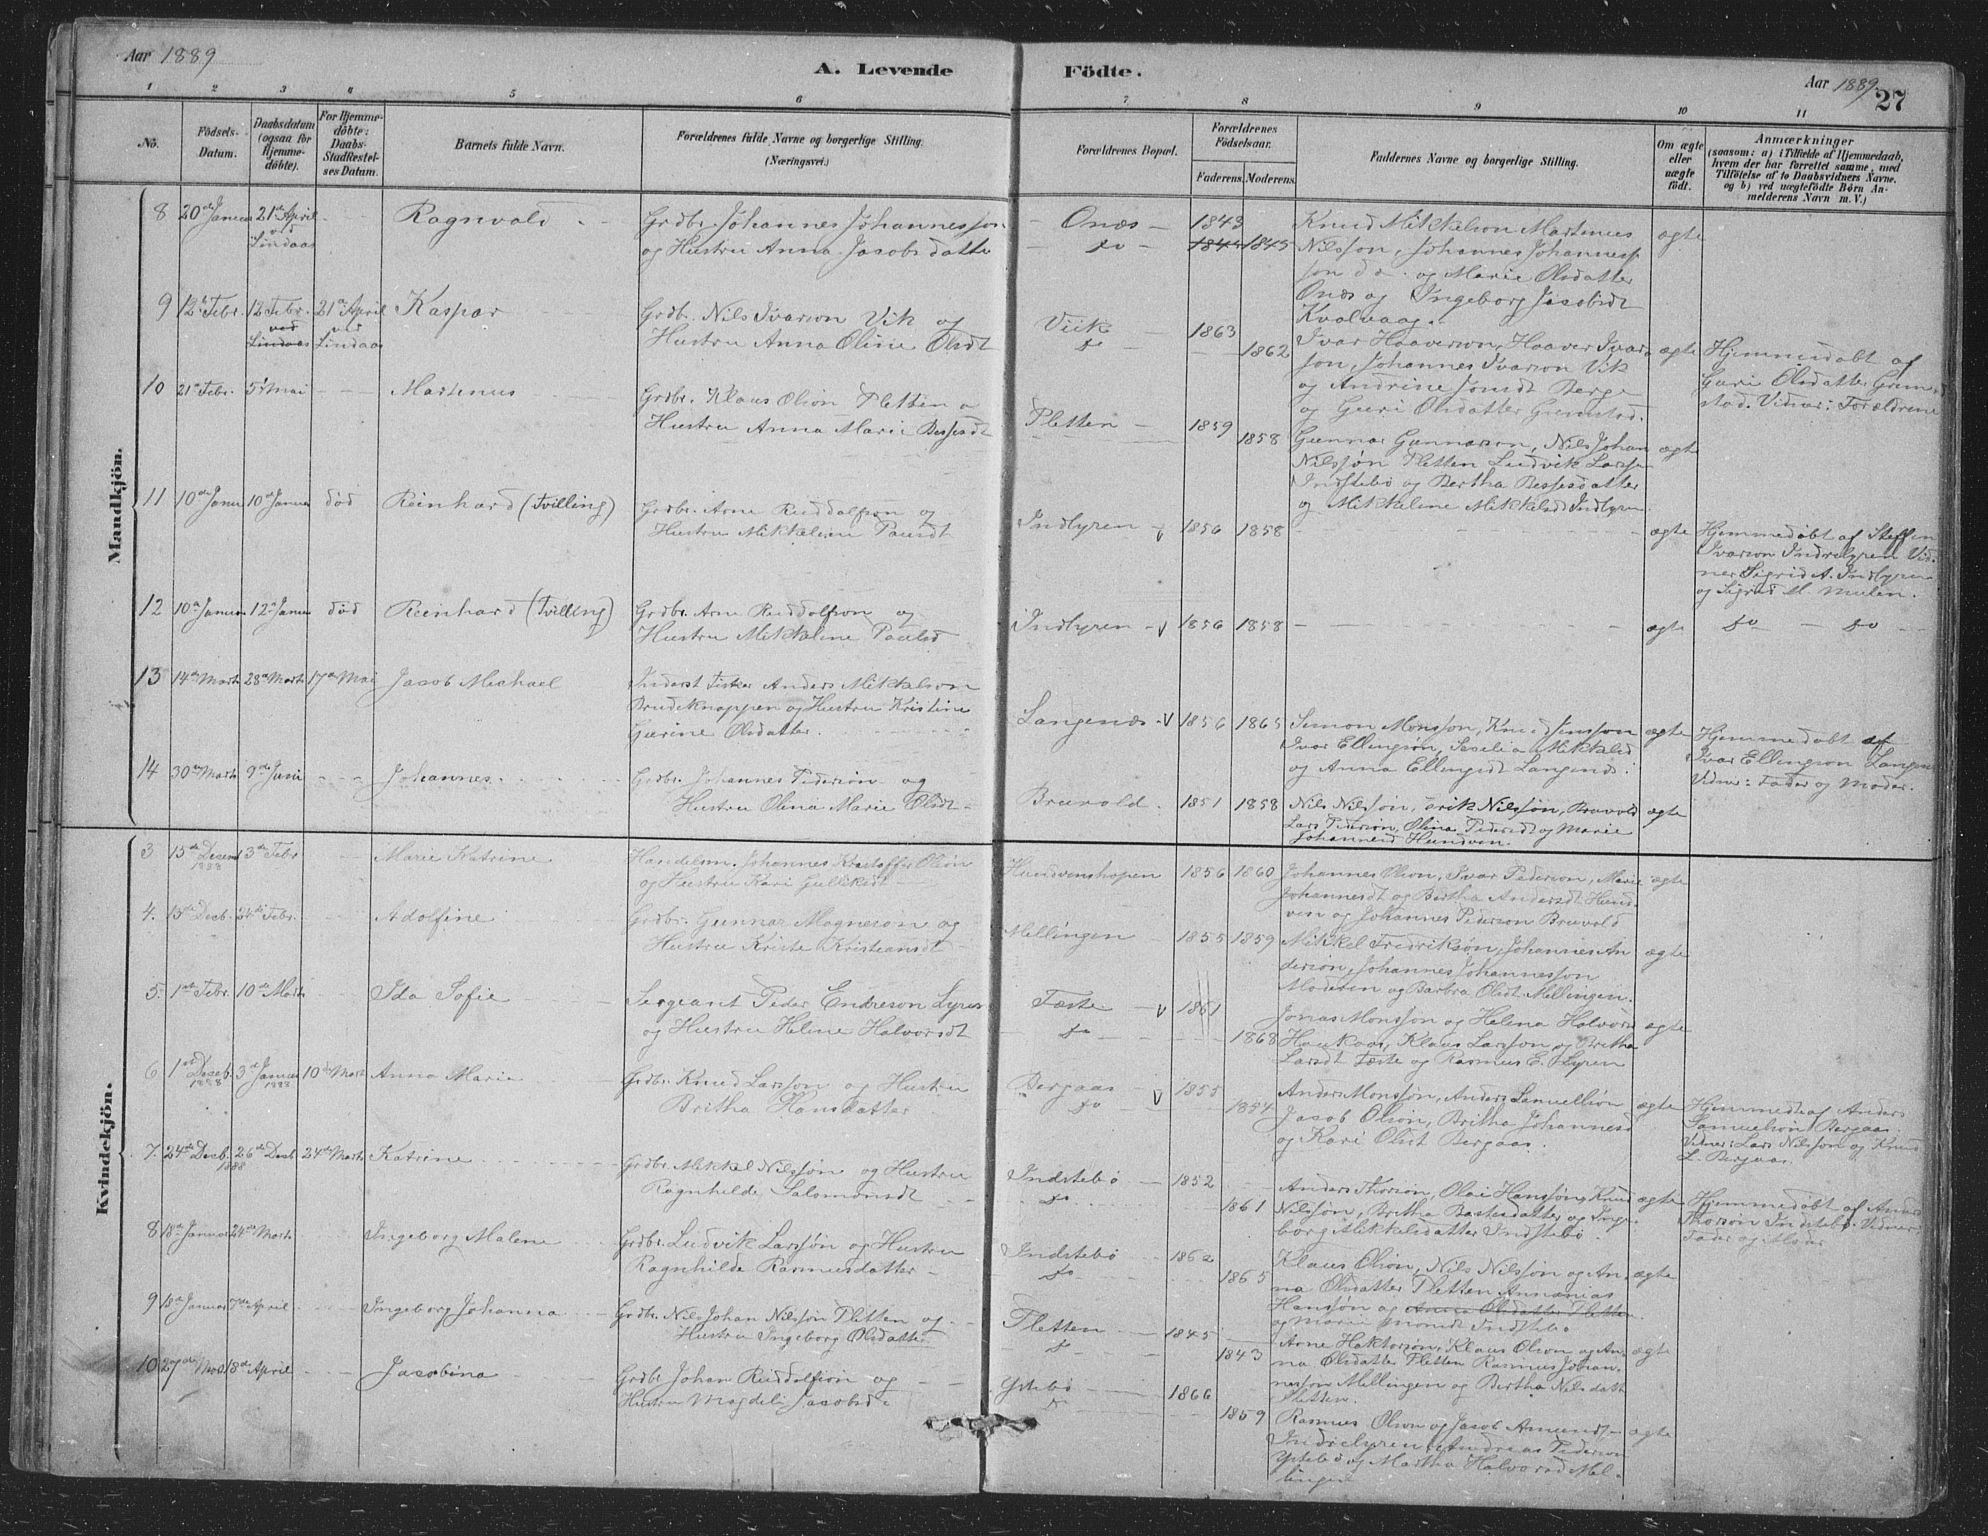 Aar 1889
A. Levende Födte.
Aar 1889. 27
1 2 3 4 5 6 7 8 9 10 11
No.
Födsels-
Datum.
Daabsdatum
(ogsaa for
Hjemme-
döbte).
For Hjemme-
döbte:
Daabs-
Stadfæstel-
ses Datum.
Barnets fulde Navn.
Forældrenes fulde Navne og borgerlige Stilling.
(Næringsvei.)
Forældrenes Bopæl.
Forældrenes
Födselsaar.
Faderens. Moderens.
Faddernes Navne og borgerlige Stilling.
Om ægte
eller
uægte
födt.
Anmærkninger
(saasom: a) i Tilfælde af Hjemmedaab,
hvem der har forrettet samme, med
Tilföielse af to Daabsvidners Navne,
og b) ved uægtefödte Börn An-
melderens Navn m. V.)
Mandkjön.
8 20de Januar 21de April Ragnvald Grdbr. Johannes Johannesson Onæs 1843 Knud Mikkelson Martinus ægte
ved Lindaas og Hustru Anna Jacobsdatter do 1845 1845 Nilsson, Johannes Johannes-
son do. og Marie Olsdatter
Onæs og Ingeborg Jacobsdt
Kvalvaag.
9 12te Febr. 12 Febr. 21de April Kaspar Grdbr. Nils Ivarson Vik og Viik 1863
ved Lindaas ved Lindaas Hustru Anna Oline Olsdt do 1862 Ivar Haaverson, Haaver Ivar- ægte Hjemmedöbt af
son, Johannes Ivarson Vik Guri Olsdatter Grim-
og Andrine Jonsdt Berge stad. Vidner: Forældrene
og Guri Olsdatter Grimstad.
10 21de Febr. 5te Mai Martinus Grdbr. Klaus Olson Pletten og Pletten 1859
Hustru Anna Marie Bessesdt 1858 Gunnar Gunnarson, Nils Johan ægte
Nilsson Pletten Ludvik Lars-
Indstebö og Bertha Bessesdatter
og Mikkeline Mikkelsd Indlyren
11 10de Januar 10de Januar död Reinhard (Tvilling) Grdbr. Arne Ruddolfson og Indlyren 1856 1858 ægte Hjemmedöbt af Steffen
Hustru Mikkeline Paulsdt Ivarson Indrelyren Vid-
ner Sigrid A. Indlyren
og Sigrid M. Mulen.
12 10de Januar 12te Januar död Reinhard (Tvilling) Grdbr. Arne Ruddolfson og Indlyren 1856 1858 ægte do do
Hustru Mikkeline Paulsd
13 14de Marts 28de Marts 17de Mai Jacob Michael Inderst Fisker Anders Mikkelson
Brudeknappen og Hustru Kristine Langenæs 1856 1865 Simon Monsson, Knud Jensson ægte Hjemmedöbt af
Gurine Olsdatter. Ivar Ellingson, Seselia Mikkelsd Ivar Ellingson Langenæs
og Anna Ellingsdt Langenæs. Vidner: Fader og Moder.
14 30de Marts 9de Juni Johannes Grdbr. Johannes Pederson og Bruvold 1851 1858 Nils Nilsson, Erik Nilsson, Bruvold ægte
Hustru Olina Marie Olsdt Lars Pederson, Olina Pedersdt og Marie
Johannesd Hundven.
Kvindekjön.
3 15de Desem 1888 3de Febr. Marie Katrine Handelsm. Johannes Kristoffer Olson Hundvenshopen 1856 1860 Johannes Olson, Ivar Pederson, Marie ægte
og Hustru Kari Gulliksdt Johannesdt og Bertha Andersdt Hund-
ven og Johannes Pederson Bruvold
4. 15de Decb. 24de Febr. Adolfine Grdbr. Gunnar Magneson og Mellingen 1855 1859 Mikkel Fredrikson, Johannes An ægte
Hustru Kriste Kristiansdt derson, Johannes Johannesson
Modeten og Barbra Olsdt Mellingen.
5. 1ste Febr. 10de Marts Ida Sofie Sergeant Peder Endreson Lyren Fæste 1861 Jonas Monsson og Helena Halvorsd ægte
og Hustru Helene Halvorsdt do 1868 Haukaas, Klaus Larsson og Britha
Larsdt Fæste og Rasmus E. Lyren
6. 1ste Deceb. 1888 3de Januar 1888 10de Marts Anna Marie Grdbr. Knud Larsson og Hustru Bergaas 1855 Anders Monsson, Anders Samuelson ægte Hjemmed. af Anders
Britha Hansdatter do 1854 Jacob Olson, Britha Johannesd Samuelson Bergaas.
og Kari Olsdt Bergaas. Vidner: Lars Nilsson og Knud
L. Bergaas.
7. 24de Decb. 1888 26de Decb. 24de Marts Katrine Grdbr. Mikkel Nilsson og Hustru Indstebö 1852 Anders Thorson, Olai Hansson, Knud ægte Hjemmedöbt af Anders
Ragnhilde Salomonsdt do 1861 Nilsson, Britha Bastesdatter og Inge- Thorson Indstebö. Vidner:
borg Mikkelsdatter Indstebö. Fader og Moder
8 18de Januar 24de Marts Ingeborg Malene Grdbr. Ludvik Larsson og Hustru Indstebö 1862 Klaus Olson, Nils Nilsson og An- ægte
Ragnhilde Rasmusdatter do 1865 na Olsdatter Pletten Annanias
Hansson og Anna Olsdatter Pletten
og Marie Monsdt Indstebö
9 18de Januar 7de April Ingeborg Johanna Grdbr. Nils Johan Nilsson Pletten og Pletten 1845 Arne Haktorson, Klaus Olson og An- ægte
Hustru Ingeborg Olsdatter do 1843 na Olsdatter Pletten Rasmus Johan-
nesson Mellingen og Bertha Nilsdatt
Pletten.
10 27de Mars 18de April Jacobina Grdbr Johan Ruddolfson og Ystebö 1866 Rasmus Olson og Jacob Amunds- ægte
Hustru Magdeli Jacobsd. do 1859 Indrelyren Andreas Pederson
Ystebö og Martha Halvorsd Mel-
lingen